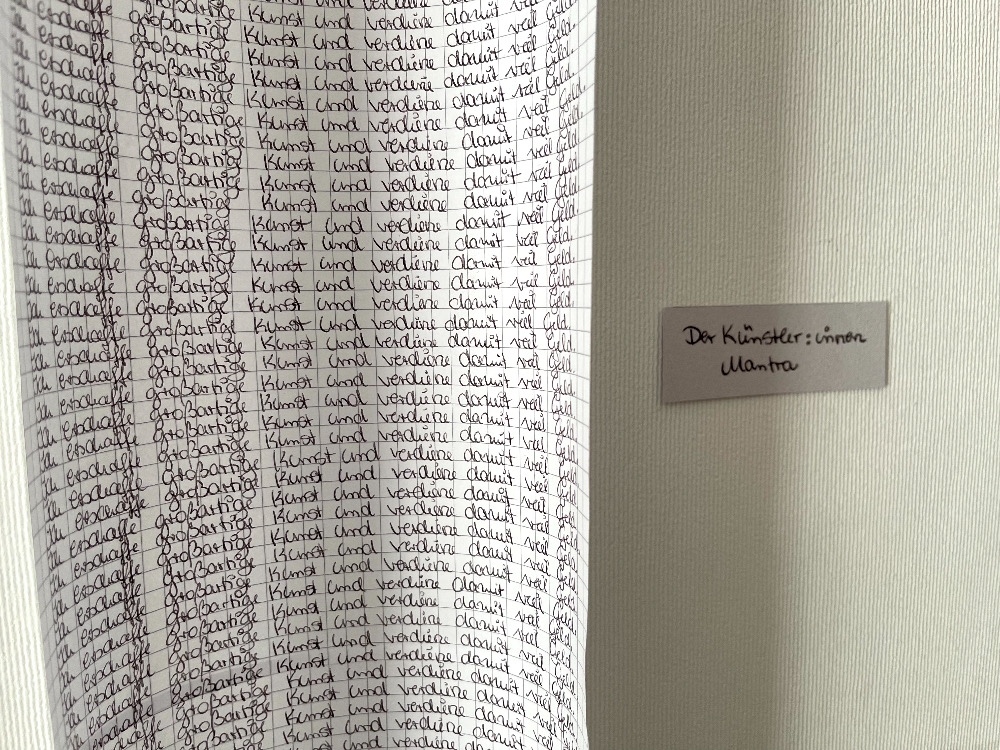 Ich erschaffe großartige Kunst und verdiene damit viel Geld.
Ich erschaffe großartige Kunst und verdiene damit viel Geld.
Ich erschaffe großartige Kunst und verdiene damit viel Geld.
Ich erschaffe großartige Kunst und verdiene damit viel Geld.
Ich erschaffe großartige Kunst und verdiene damit viel Geld.
Ich erschaffe großartige Kunst und verdiene damit viel Geld.
Ich erschaffe großartige Kunst und verdiene damit viel Geld.
Ich erschaffe großartige Kunst und verdiene damit viel Geld.
Ich erschaffe großartige Kunst und verdiene damit viel Geld.
Ich erschaffe großartige Kunst und verdiene damit viel Geld.
Ich erschaffe großartige Kunst und verdiene damit viel Geld.
Ich erschaffe großartige Kunst und verdiene damit viel Geld.
Ich erschaffe großartige Kunst und verdiene damit viel Geld.
Ich erschaffe großartige Kunst und verdiene damit viel Geld.
Ich erschaffe großartige Kunst und verdiene damit viel Geld.
Ich erschaffe großartige Kunst und verdiene damit viel Geld.
Ich erschaffe großartige Kunst und verdiene damit viel Geld.
Ich erschaffe großartige Kunst und verdiene damit viel Geld.
Ich erschaffe großartige Kunst und verdiene damit viel Geld.
Ich erschaffe großartige Kunst und verdiene damit viel Geld.
Ich erschaffe großartige Kunst und verdiene damit viel Geld.
Ich erschaffe großartige Kunst und verdiene damit viel Geld.
Ich erschaffe großartige Kunst und verdiene damit viel Geld.
Ich erschaffe großartige Kunst und verdiene damit viel Geld.
Ich erschaffe großartige Kunst und verdiene damit viel Geld.
Ich erschaffe großartige Kunst und verdiene damit viel Geld.
Ich erschaffe großartige Kunst und verdiene damit viel Geld.
Ich erschaffe großartige Kunst und verdiene damit viel Geld.
Ich erschaffe großartige Kunst und verdiene damit viel Geld.
Ich erschaffe großartige Kunst und verdiene damit viel Geld.
Ich erschaffe großartige Kunst und verdiene damit viel Geld.
Ich erschaffe großartige Kunst und verdiene damit viel Geld.
Ich erschaffe großartige Kunst und verdiene damit viel Geld.
Ich erschaffe großartige Kunst und verdiene damit viel Geld.
großartige Kunst und verdiene damit viel Geld.
Kunst und verdiene damit viel
Der Künstler:innen
Mantra